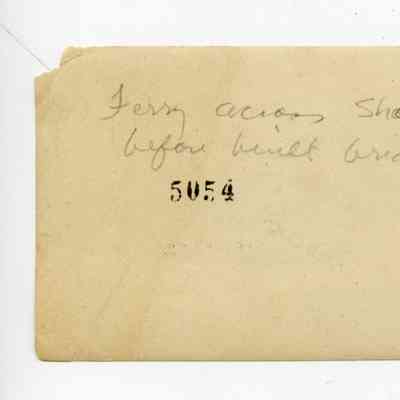 Ferry across Sho
before built bri
5054